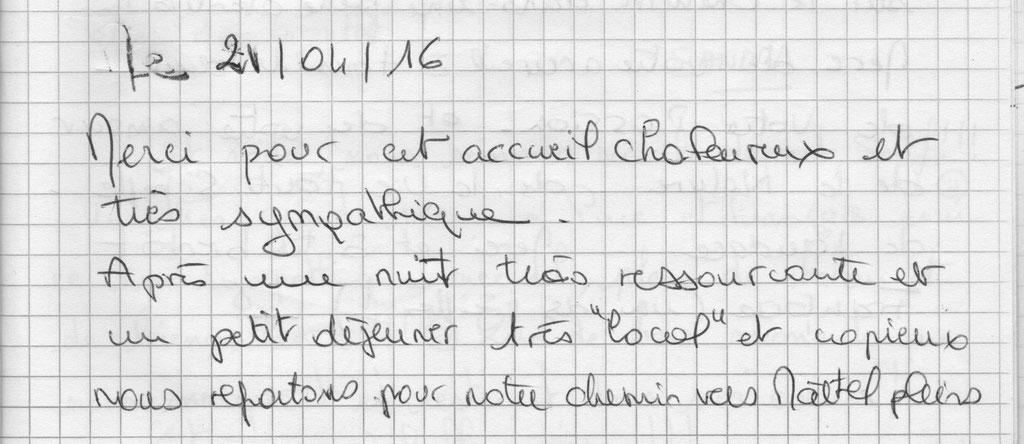 Le 21/04/16
Merci pour cet accueil chaleureux et
très sympathique.
Après une nuit très ressourcante et
un petit déjeuner très "local" et copieux
nous repartons pour notre chemin vers Maîtel pleins